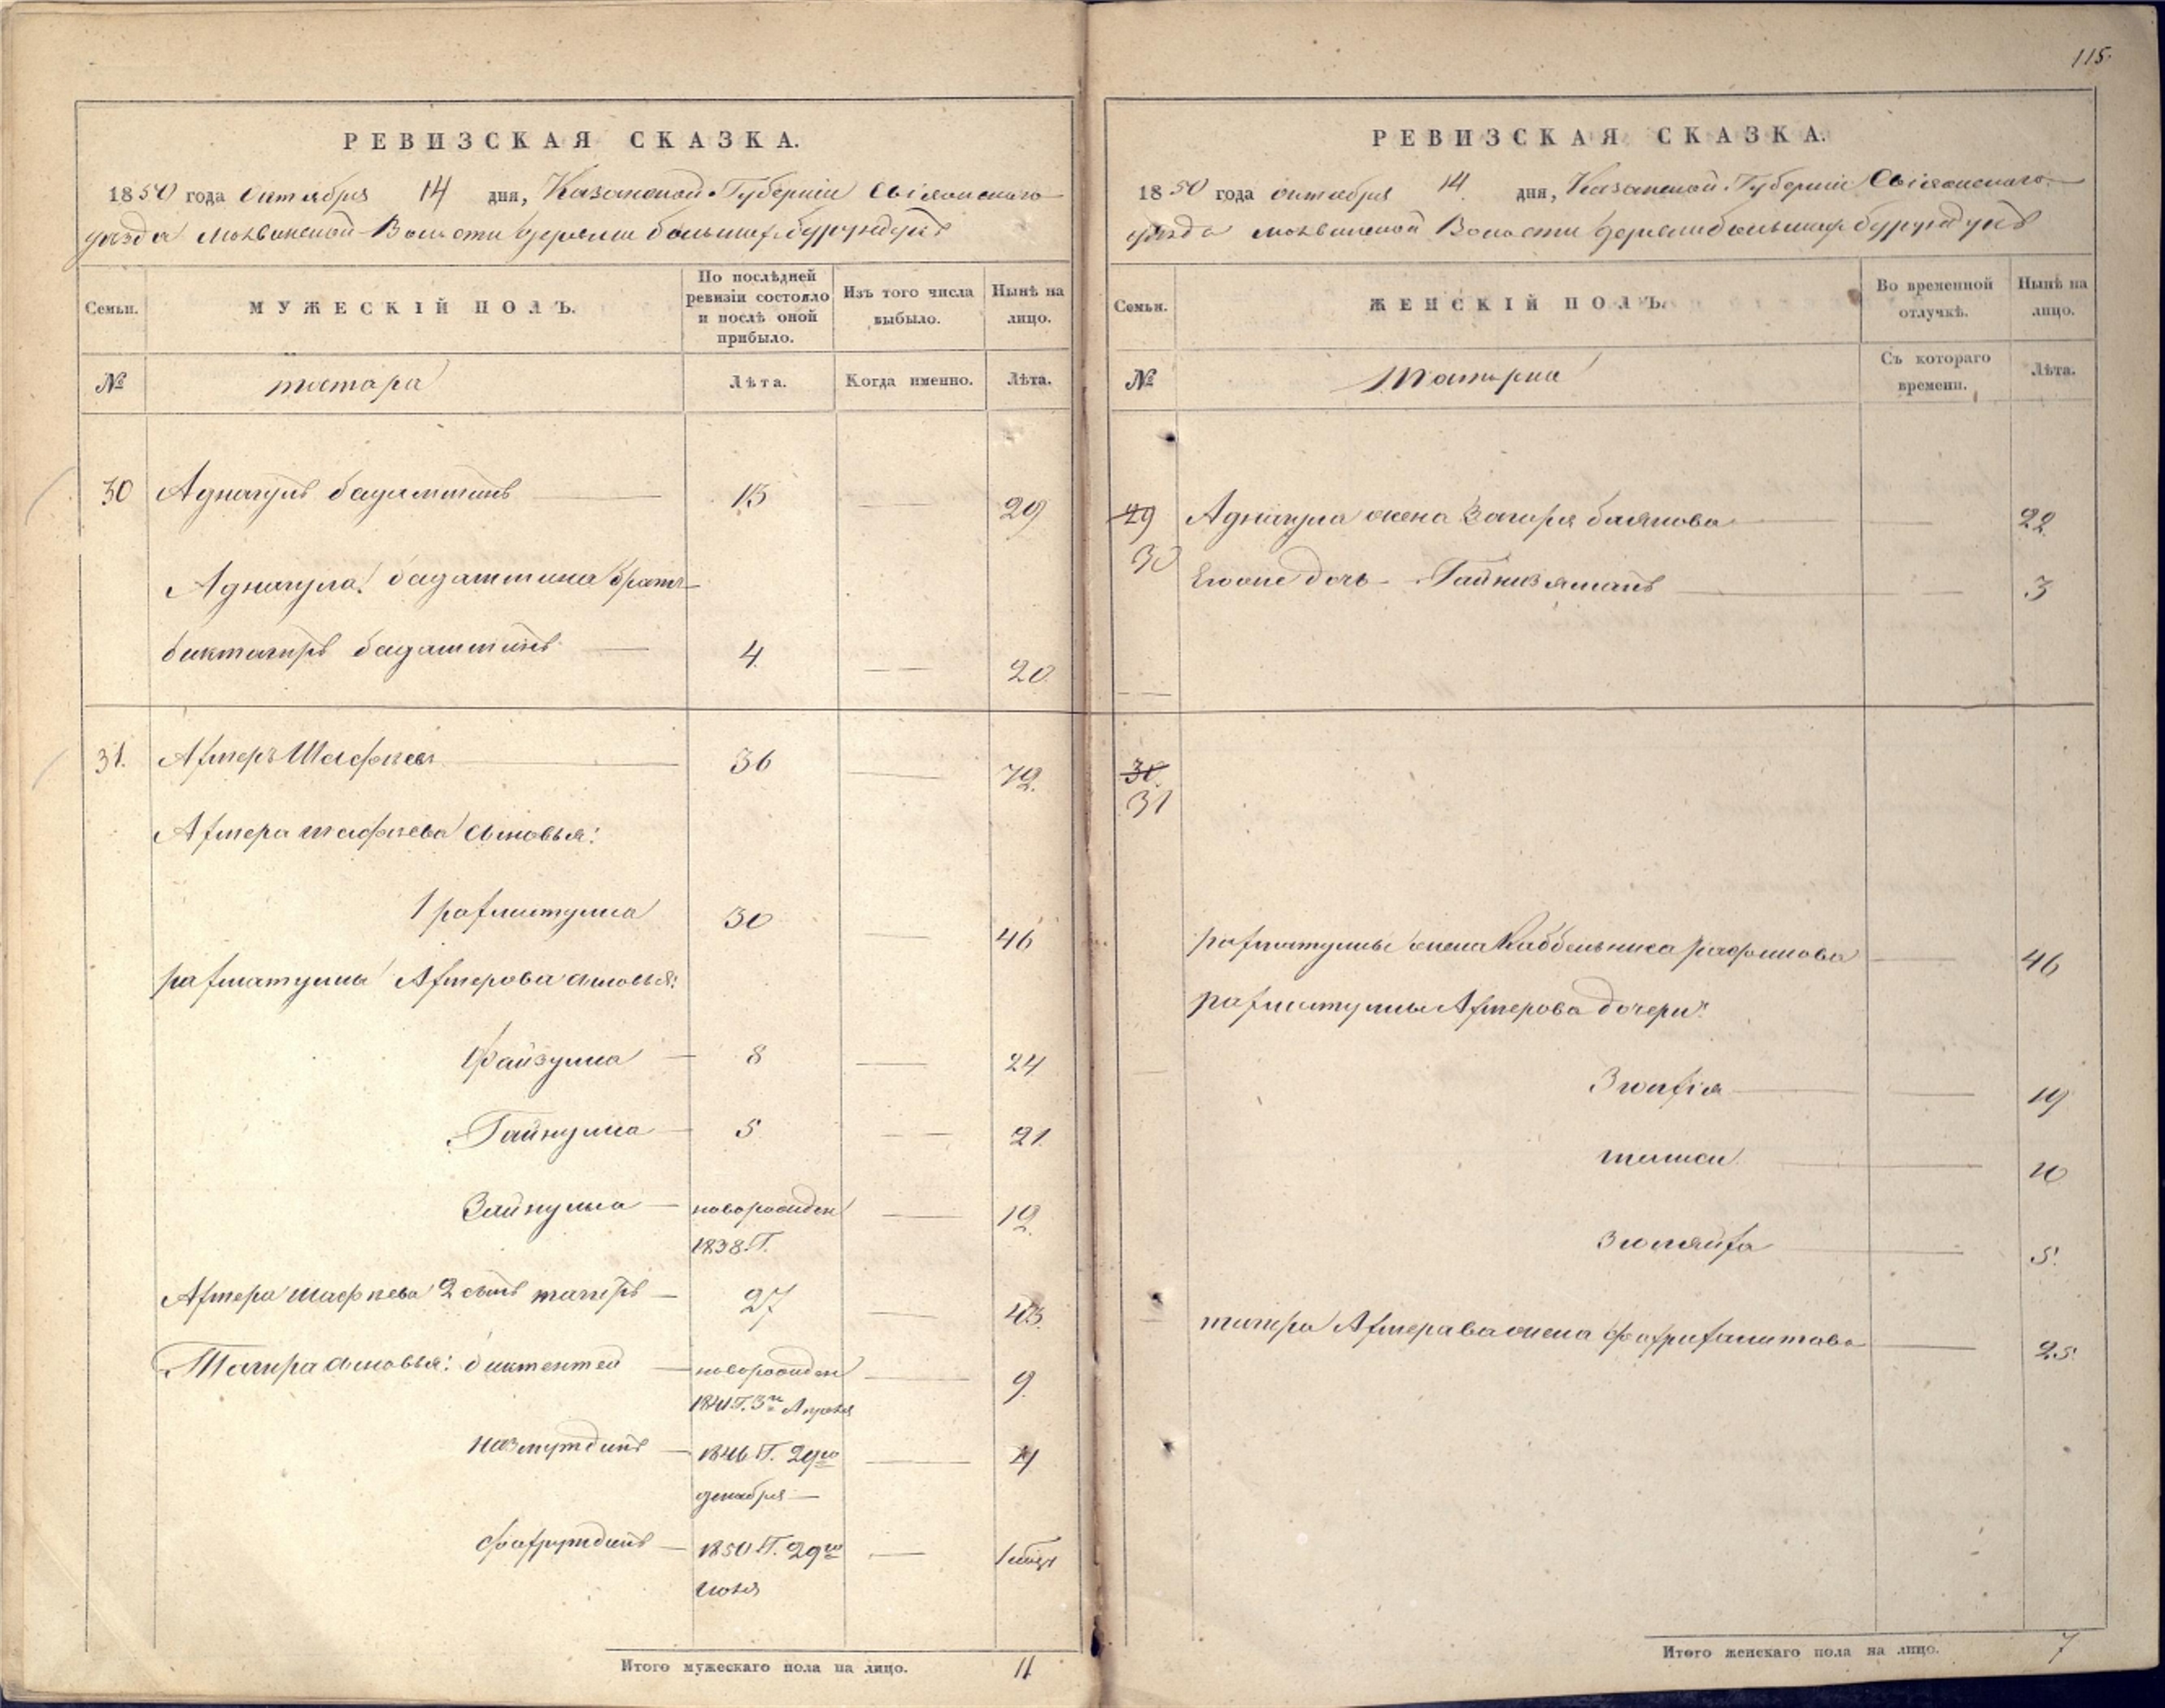 115.
РЕВИЗСКАЯ СКАЗКА.
1850 года октября 14 дня, Казанской Губерніи Свіяжскаго
уѣзда Молвинской Волости деревни большихъ бурундукъ
Семьи.
МУЖЕСКІЙ ПОЛЪ.
По послѣдней ревизіи состояло и послѣ оной прибыло.
Изъ того числа выбыло.
Нынѣ на лицо.
№
татара
Лѣта.
Когда именно.
Лѣта.
30 Аднагулъ бадамшинъ 13 29
Аднагула бадамшина братъ
биктагиръ бадамшинъ 4 20
31. Ахтеръ Шафѣевъ 36 72.
Ахтера шафѣева сыновья:
1 рахматулла 30 46
рахматуллы Ахтерова сыновья:
Файзулла 8 24
Гайнулла 5 21.
Зайнулла новорожден 12
1838. Г.
Ахтера шафѣева 2 сынъ тагиръ 27 43.
Тагира сыновья: биктентей новорожден 9.
1841 Г. 3го Апреля
назмутдинъ 1846 Г. 29го 4
декабря
фахрутдинъ 1850 Г. 29го
Июня
Итого мужескаго пола на лицо. 11
РЕВИЗСКАЯ СКАЗКА.
1850 года октября 14 дня, Казанской Губерніи Свіяжскаго
уѣзда Молвинской Волости деревни большихъ бурундукъ
Семьи.
ЖЕНСКІЙ ПОЛЪ.
Во временной отлучкѣ.
Нынѣ на лицо.
№
Татарки
Съ котораго времени.
Лѣта.
29 Аднагула жена Загиря баянова 22
30 Егоже дочь Гайнизямалъ 3
30.
31
рахматуллы жена Хаббельниса рафикова 46
рахматуллы Ахтерова дочери:
Зюлхія 19
10
Зюляйха 5.
тагира Ахтерава жена 25.
Итого женскаго пола на лицо. 7